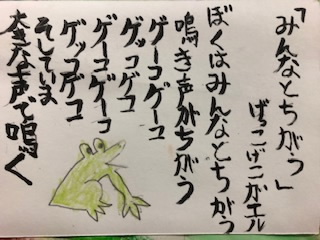 「みんなとちがう」
げっこげこがエル
ぼくはみんなとちがう
鳴き声がちがう
ゲーコゲーコ
ゲッコゲコ
ゲーコゲーコ
ゲッコゲコ
そしていま
大きな声で鳴く